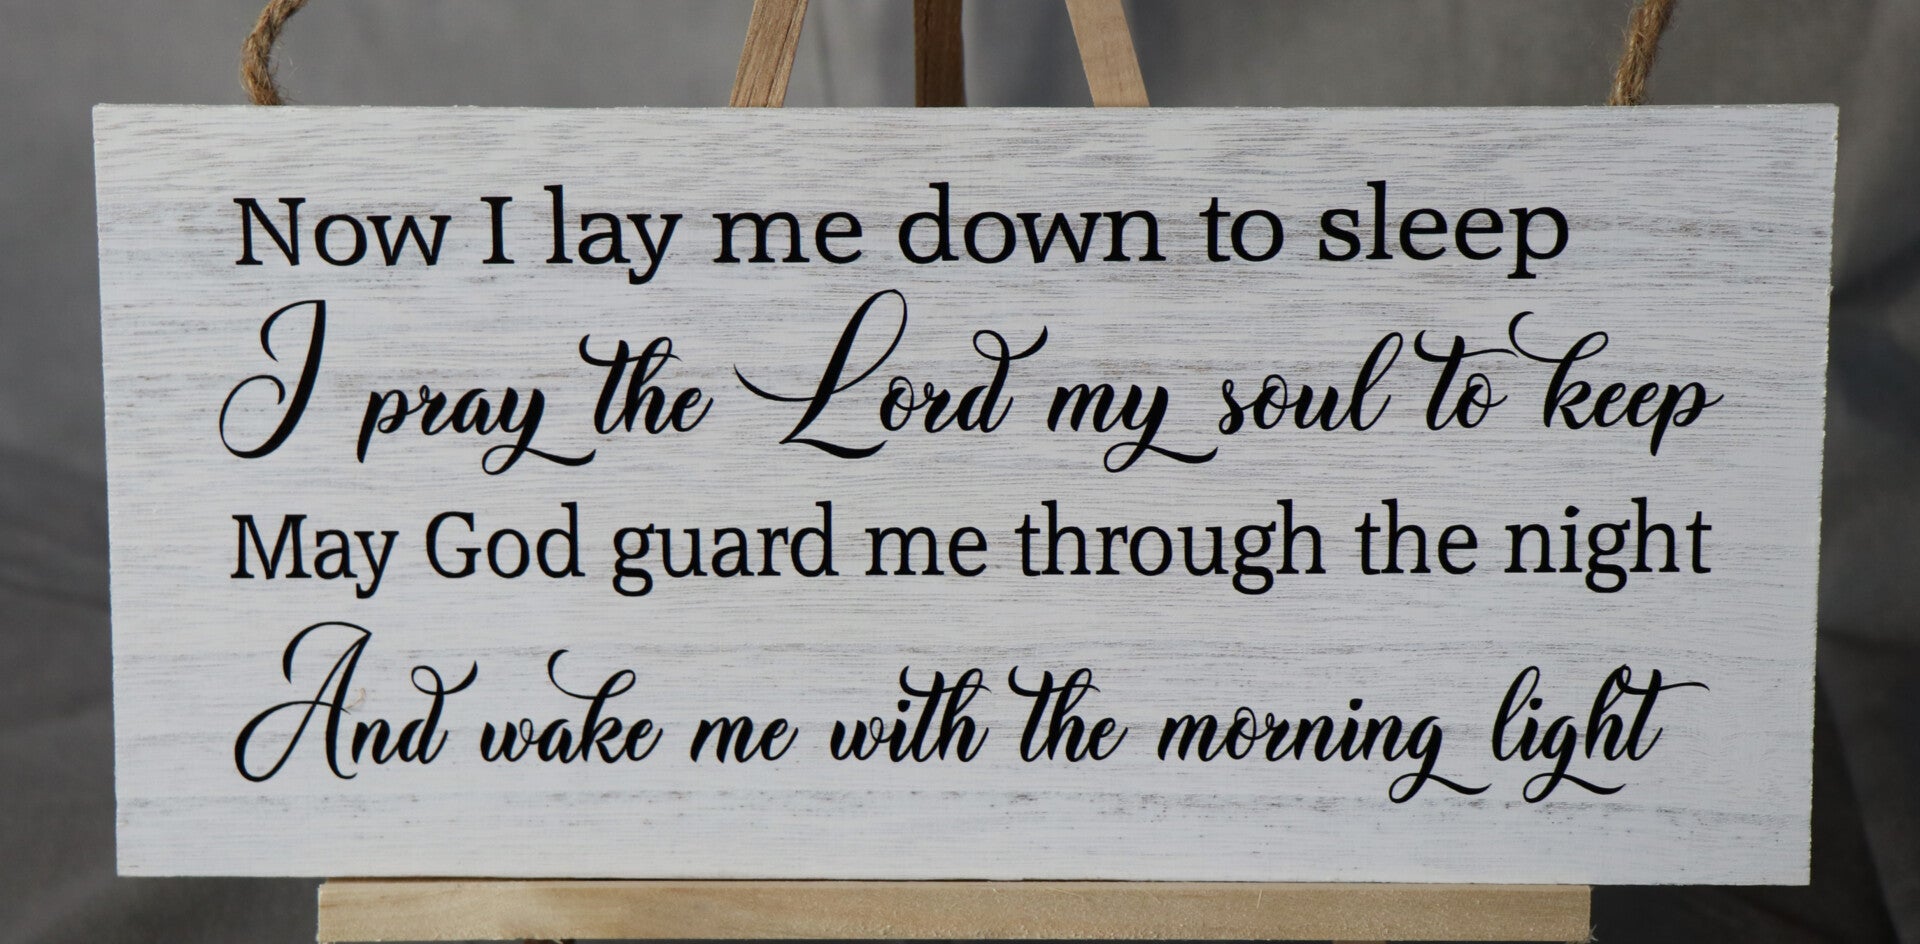 Now I lay me down to sleep
I pray the Lord my soul to keep
May God guard me through the night
And wake me with the morning light